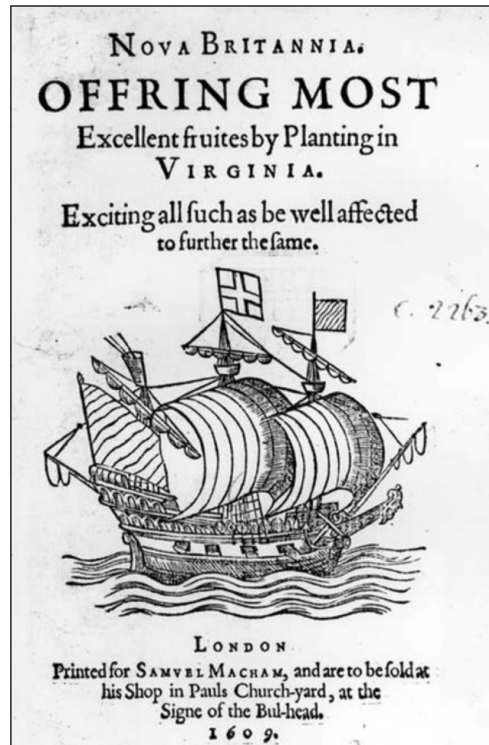 NOVA BRITANNIA.
OFFRING MOST
Excellent fruites by Planting in
VIRGINIA.
Exciting all ſuch as be well affected
to further the ſame.
C. 2263
LONDON
Printed for SAMVEL MACHAM, and are to be ſold at
his Shop in Pauls Church-yard, at the
Signe of the Bul-head.
1609.